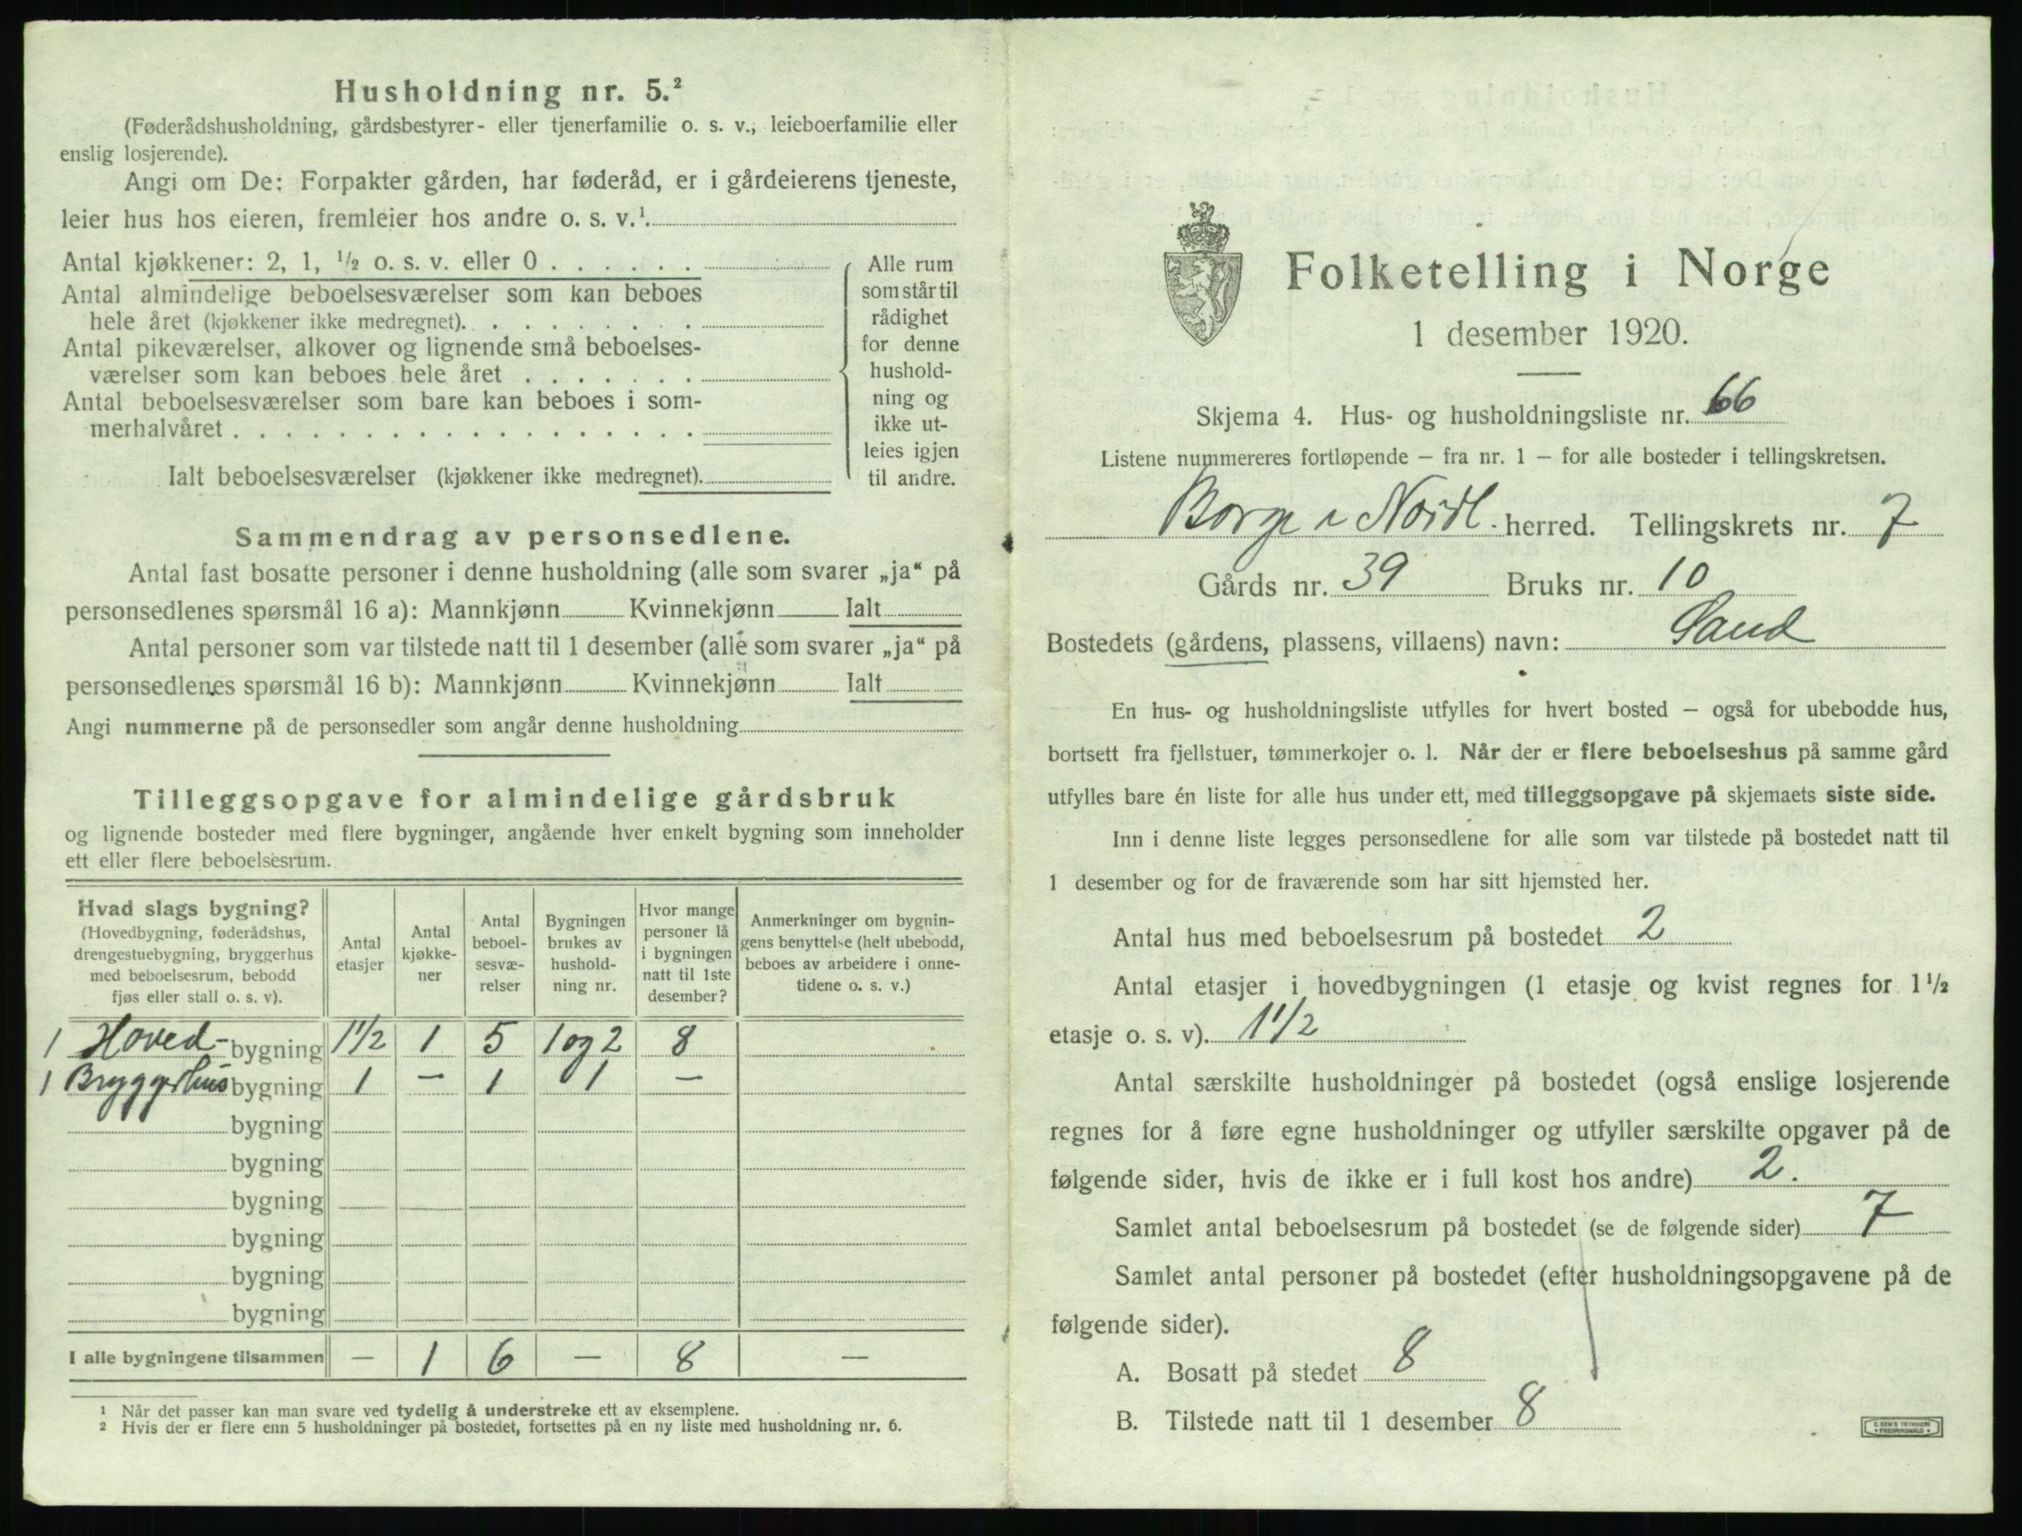 Husholdning nr. 5.²
(Føderådshusholdning, gårdsbestyrer- eller tjenerfamilie o. s. v., leieboerfamilie eller
enslig losjerende).
Angi om De: Forpakter gården, har føderåd, er i gårdeierens tjeneste,
leier hus hos eieren, fremleier hos andre o. s. v.¹
Antal kjøkkener: 2, 1, ½ o. s. v. eller 0
Antal almindelige beboelsesværelser som kan beboes
hele året (kjøkkener ikke medregnet)
Antal pikeværelser, alkover og lignende små beboelses-
værelser som kan beboes hele året
Antal beboelsesværelser som bare kan beboes i som-
merhalvåret
Ialt beboelsesværelser (kjøkkener ikke medregnet)
Alle rum
som står til
rådighet
for denne
hushold-
ning og
ikke ut-
leies igjen
til andre.
Sammendrag av personsedlene.
Antal fast bosatte personer i denne husholdning (alle som svarer „ja“ på
personsedlenes spørsmål 16 a): Mannkjønn Kvinnekjønn Ialt
Antal personer som var tilstede natt til 1 desember (alle som svarer „ja“ på
personsedlenes spørsmål 16 b): Mannkjønn Kvinnekjønn Ialt
Angi nummerne på de personsedler som angår denne husholdning
Tilleggsopgave for almindelige gårdsbruk
og lignende bosteder med flere bygninger, angående hver enkelt bygning som inneholder
ett eller flere beboelsesrum.
Hvad slags bygning?
(Hovedbygning, føderådshus,
drengestuebygning, bryggerhus
med beboelsesrum, bebodd
fjøs eller stall o. s. v).
Antal
etasjer
Antal
kjøkke-
ner
Antal
beboel-
sesvæ-
relser
Bygningen
brukes av
hushold-
ning nr.
Hvor mange
personer lå
i bygningen
natt til 1ste
desember?
Anmerkninger om bygnin-
gens benyttelse (helt ubebodd,
beboes av arbeidere i onne-
tidene o. s. v.)
1 Hoved- bygning 1½ 1 5 1 og 2 8
1 Bryggerhus bygning 1 — 1 1 —
bygning
bygning
bygning
bygning
bygning
bygning
I alle bygningene tilsammen — 1 6 — 8 —
¹ Når det passer kan man svare ved tydelig å understreke ett av eksemplene.
² Hvis der er flere enn 5 husholdninger på bostedet, fortsettes på en ny liste med husholdning nr. 6.
Folketelling i Norge
1 desember 1920.
Skjema 4. Hus- og husholdningsliste nr. 66
Listene nummereres fortløpende — fra nr. 1 — for alle bosteder i tellingskretsen.
Borge i Nordl. herred. Tellingskrets nr. 7
Gårds nr. 39 Bruks nr. 10
Bostedets (gårdens, plassens, villaens) navn: Sand
En hus- og husholdningsliste utfylles for hvert bosted — også for ubebodde hus,
bortsett fra fjellstuer, tømmerkojer o. l. Når der er flere beboelseshus på samme gård
utfylles bare én liste for alle hus under ett, med tilleggsopgave på skjemaets siste side.
Inn i denne liste legges personsedlene for alle som var tilstede på bostedet natt til
1 desember og for de fraværende som har sitt hjemsted her.
Antal hus med beboelsesrum på bostedet 2
Antal etasjer i hovedbygningen (1 etasje og kvist regnes for 1½
etasje o. s. v). 1½
Antal særskilte husholdninger på bostedet (også enslige losjerende
regnes for å føre egne husholdninger og utfyller særskilte opgaver på de
følgende sider, hvis de ikke er i full kost hos andre) 2.
Samlet antal beboelsesrum på bostedet (se de følgende sider) 7
Samlet antal personer på bostedet (efter husholdningsopgavene på de
følgende sider).
A. Bosatt på stedet 8
B. Tilstede natt til 1 desember 8